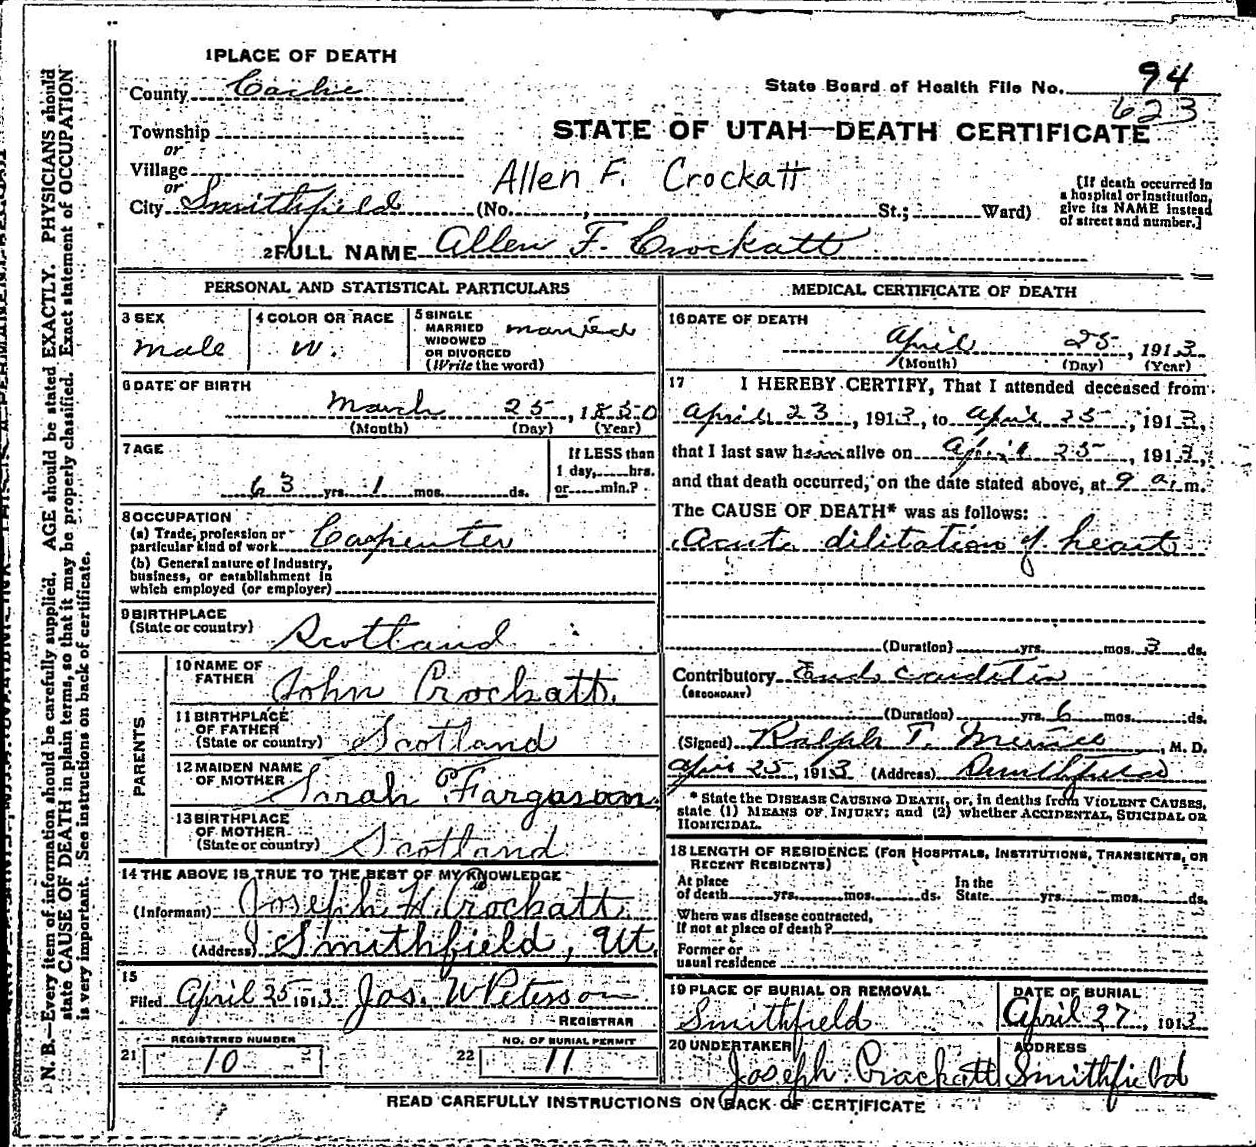 1 PLACE OF DEATH
County Cache
State Board of Health File No. 94
623
Township
or
STATE OF UTAH—DEATH CERTIFICATE
Village
or
Allen F. Crockatt
City Smithfield (No. , St.; Ward)
[If death occurred in
a hospital or institution,
give its NAME instead
of street and number.]
2 FULL NAME Allen F. Crockatt
PERSONAL AND STATISTICAL PARTICULARS
3 SEX
male
4 COLOR OR RACE
W.
5 SINGLE
MARRIED
WIDOWED
OR DIVORCED
(Write the word)
married
6 DATE OF BIRTH
March 25, 1850
(Month) (Day) (Year)
7 AGE
63 yrs. 1 mos. ds.
If LESS than
1 day, hrs.
or min.?
8 OCCUPATION
(a) Trade, profession or
particular kind of work Carpenter
(b) General nature of Industry,
business, or establishment in
which employed (or employer)
9 BIRTHPLACE
(State or country) Scotland
PARENTS
10 NAME OF
FATHER John Crockatt.
11 BIRTHPLACE
OF FATHER
(State or country) Scotland
12 MAIDEN NAME
OF MOTHER Sirah Fargason
13 BIRTHPLACE
OF MOTHER
(State or country) Scotland
14 THE ABOVE IS TRUE TO THE BEST OF MY KNOWLEDGE
(Informant) Joseph H Crockatt
(Address) Smithfield, Ut.
15
Filed April 25 1913 Jas. W Peterson
REGISTRAR
21 REGISTERED NUMBER
10
22 NO. OF BURIAL PERMIT
11
MEDICAL CERTIFICATE OF DEATH
16 DATE OF DEATH
April 25, 1913
(Month) (Day) (Year)
17 I HEREBY CERTIFY, That I attended deceased from
April 23, 1913, to April 25, 1913,
that I last saw him alive on April 25, 1913,
and that death occurred, on the date stated above, at 9 a.m.
The CAUSE OF DEATH* was as follows:
Acute dilitation of heart
(Duration) yrs. mos. 3 ds.
Contributory
(SECONDARY)
(Duration) yrs. 6 mos. ds.
(Signed) Ralph T. Merrill, M. D.
Apr 25, 1913 (Address) Smithfield
* State the DISEASE CAUSING DEATH, or, in deaths from VIOLENT CAUSES,
state (1) MEANS OF INJURY; and (2) whether ACCIDENTAL, SUICIDAL OR
HOMICIDAL.
18 LENGTH OF RESIDENCE (FOR HOSPITALS, INSTITUTIONS, TRANSIENTS, OR
RECENT RESIDENTS)
At place
of death yrs. mos. ds.
In the
State yrs. mos. ds.
Where was disease contracted,
If not at place of death?
Former or
usual residence
19 PLACE OF BURIAL OR REMOVAL
Smithfield
DATE OF BURIAL
April 27, 1913
20 UNDERTAKER
Joseph Crackatt
ADDRESS
Smithfield
READ CAREFULLY INSTRUCTIONS ON BACK OF CERTIFICATE
N. B.—Every item of information should be carefully supplied. AGE should be stated EXACTLY. PHYSICIANS should
state CAUSE OF DEATH in plain terms, so that it may be properly classified. Exact statement of OCCUPATION
is very important. See instructions on back of certificate.